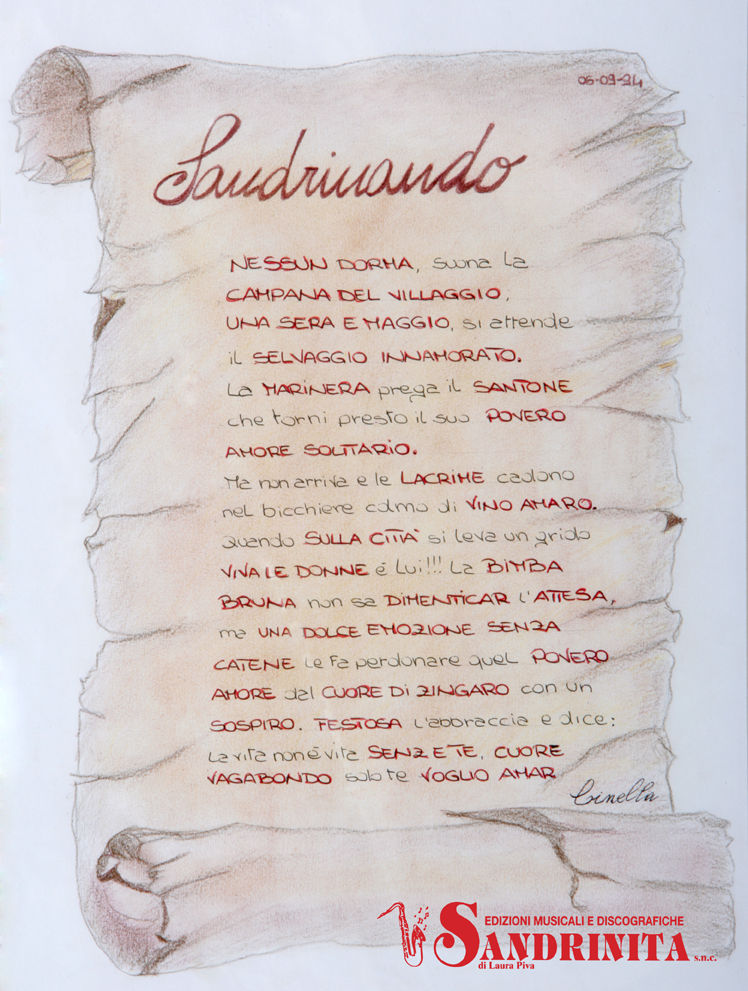 06-09-94
Sandrinando
NESSUN DORMA, suona la
CAMPANA DEL VILLAGGIO,
UNA SERA E MAGGIO, si attende
il SELVAGGIO INNAMORATO.
La MARINERA prega il SANTONE
che torni presto il suo POVERO
AMORE SOLITARIO.
Ma non arriva e le LACRIME cadono
nel bicchiere colmo di VINO AMARO.
Quando SULLA CITTA' si leva un grido
VIVA LE DONNE é lui!!! La BIMBA
BRUNA non sa DIMENTICAR l'ATTESA,
ma UNA DOLCE EMOZIONE SENZA
CATENE le fa perdonare quel POVERO
AMORE dal CUORE DI ZINGARO con un
SOSPIRO. FESTOSA l'abbraccia e dice:
La vita non é vita SENZ E TE, CUORE
VAGABONDO solo te VOGLIO AMAR
Cinella
EDIZIONI MUSICALI E DISCOGRAFICHE
SANDRINITA s.n.c.
di Laura Piva